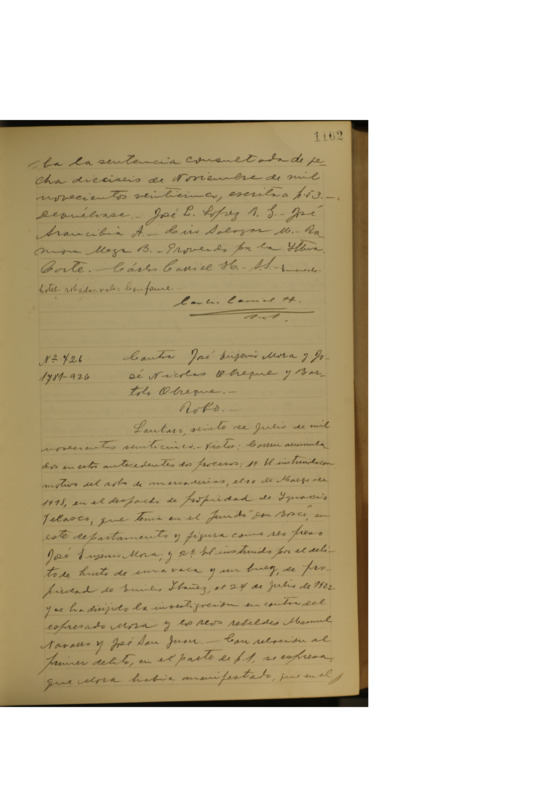 1102
ba la sentencia consultada de fe
cha dieciseis de Noviembre de mil
novecientos veinticinco, escrita a f. 53.-
Devuélvase.- José L. López R. G.- José
Arancibia A.- Luis Salazar M.- Ra
món Meza B.- Proveído por la Iltma.
Corte.- Cárlos Carriel H. S.S.-
Conforme
Carlos Carriel H.
S.S.
Nº 426 Contra José Eugenio Mora y Jo-
sé Nicolas Obreque y Bar-
tolo Obreque.-
Robo.-
Lautaro, veinte de Julio de mil
novecientos veinticinco.- Vistos: Corren acumula
dos en estos antecedentes dos procesos: 1º El instruido con
motivo del robo de mercaderías, el de Marzo de
en el despacho de propiedad de Ignacio
que tenia en el fundo Don Bosco, en
este departamento y figura como reo preso
José Eugenio Mora, y 2º El instruido por el deli-
to de hurto de una vaca y un buey, de pro-
piedad de Emilio Ibáñez, el 24 de Julio de 1922
y se ha dirijido la investigacion en contra del
espresado Mora y los reos rebeldes Manuel
Navarro y José San Juan.- Con relacion al
primer delito, en el parte de f. 1, se espresa
que Mora habia manifestado, que en el